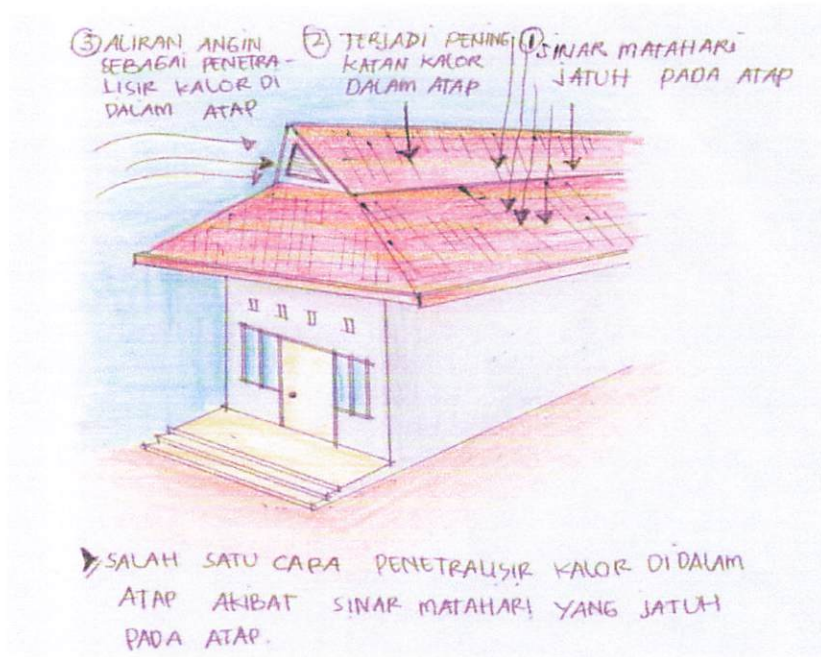 ③ ALIRAN ANGIN
SEBAGAI PENETRA-
LISIR KALOR DI
DALAM ATAP
② TERJADI PENING
KATAN KALOR
DALAM ATAP
① SINAR MATAHARI
JATUH PADA ATAP
SALAH SATU CARA PENETRALISIR KALOR DIDALAM
ATAP AKIBAT SINAR MATAHARI YANG JATUH
PADA ATAP.